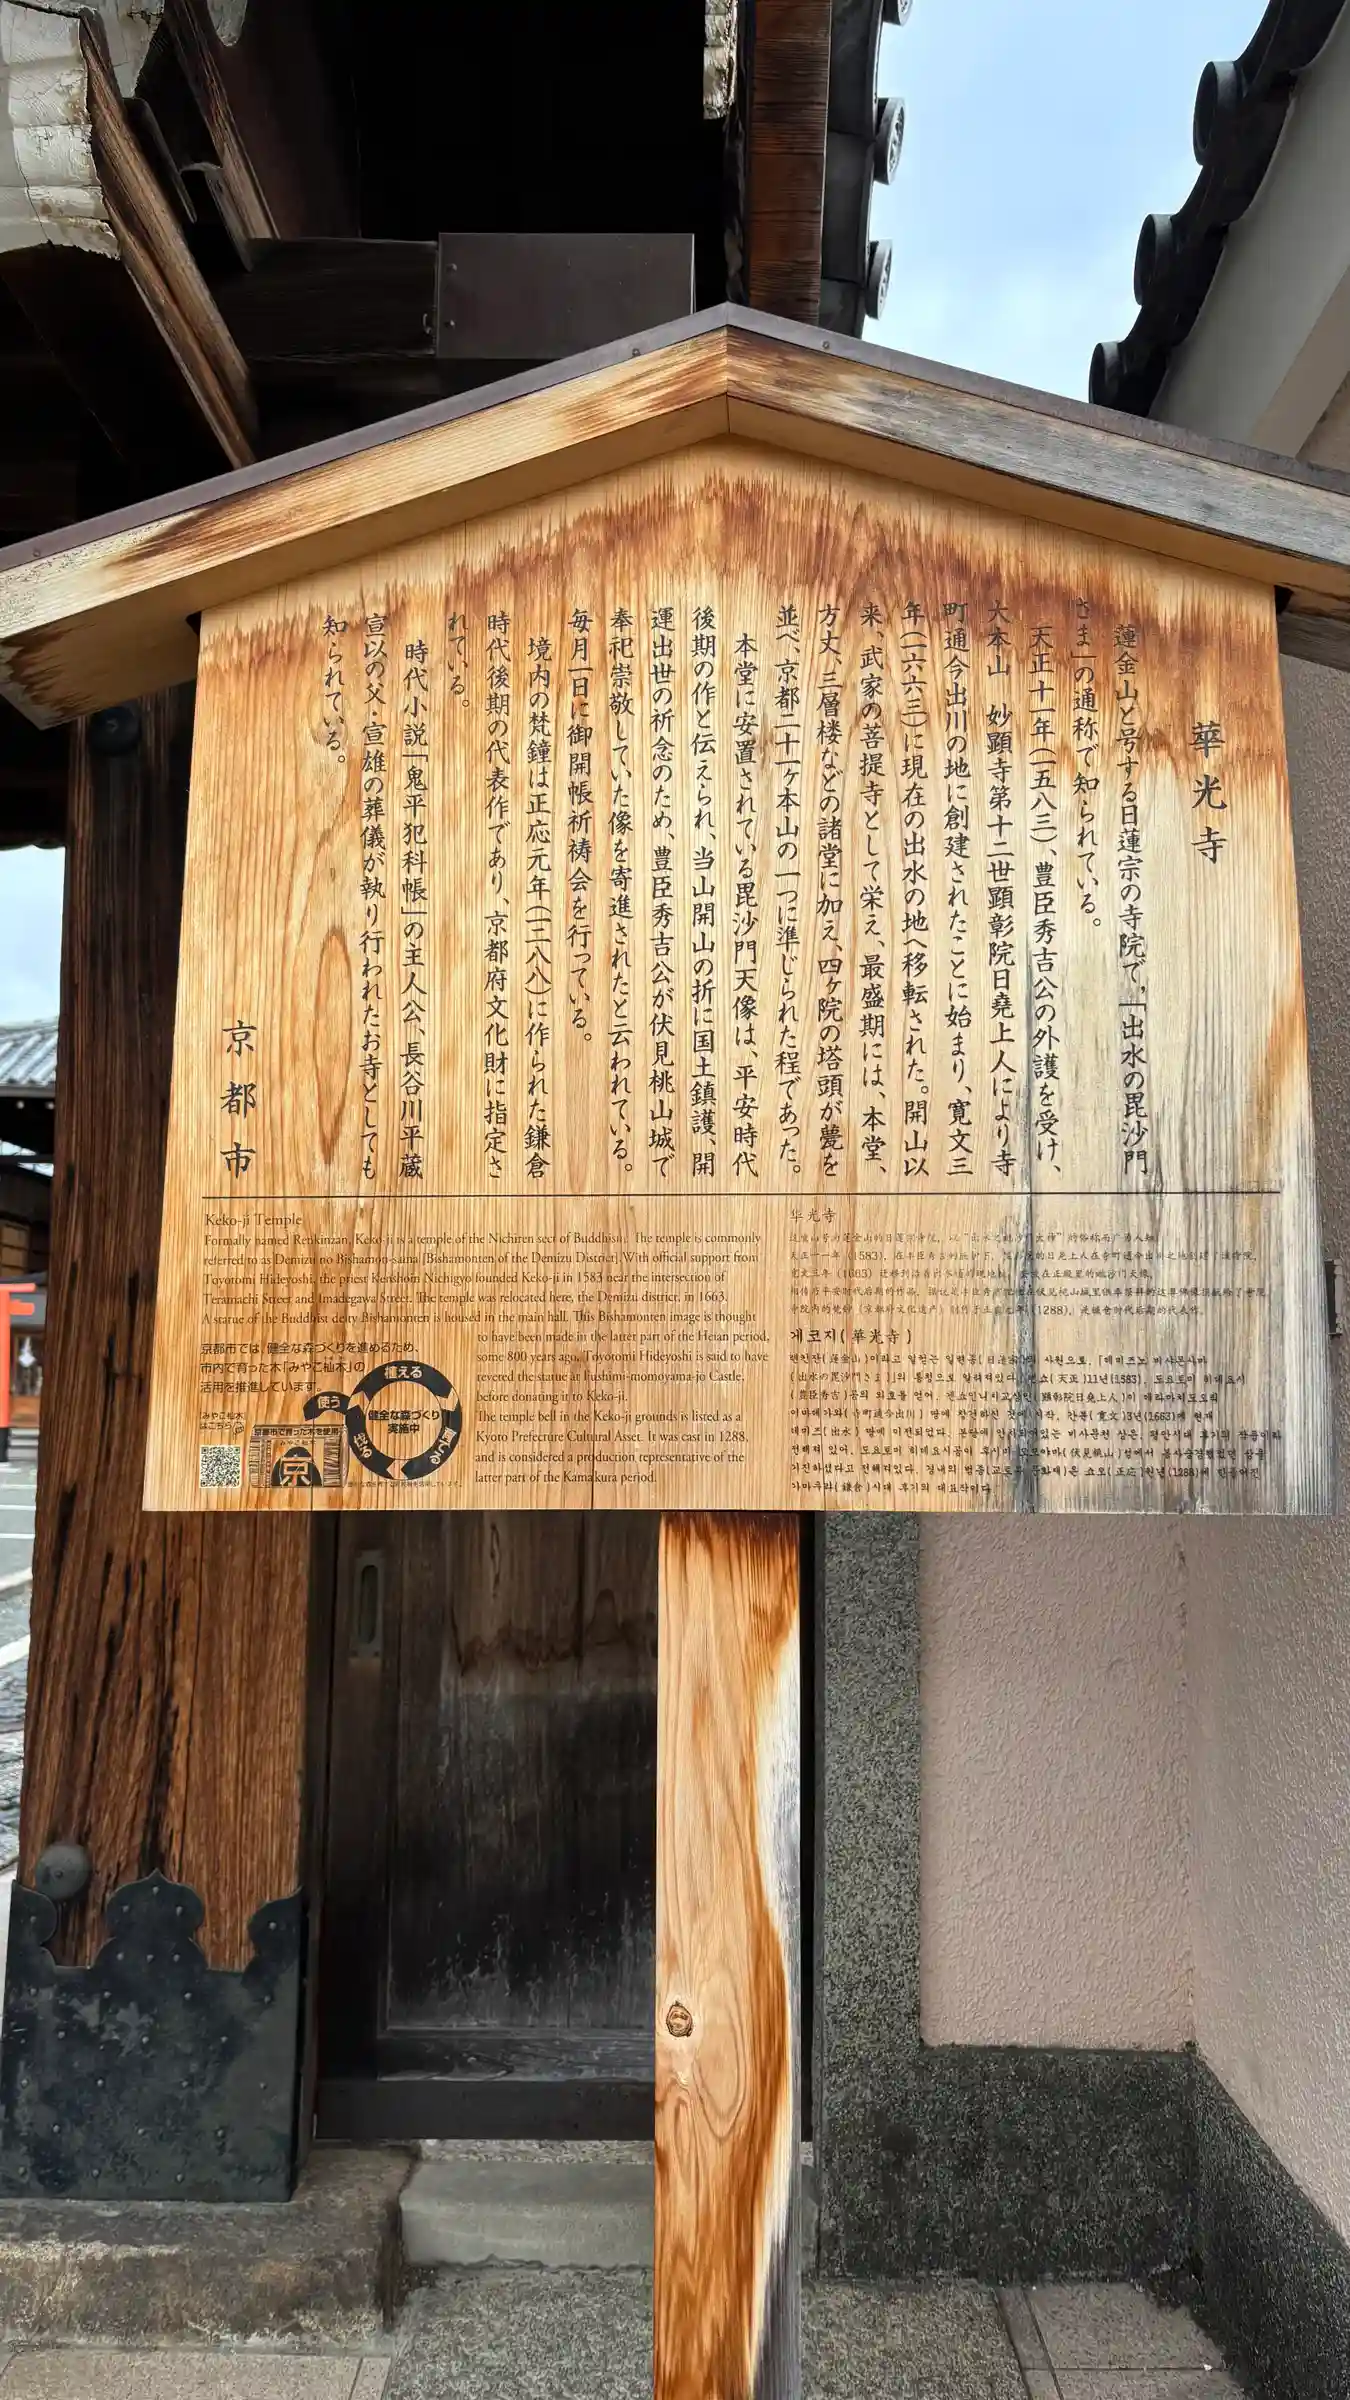 華光寺
蓮金山と号する日蓮宗の寺院で、「出水の毘沙門
さま」の通称で知られている。
天正十一年(一五八三)、豊臣秀吉公の外護を受け、
大本山 妙顕寺第十二世顕彰院日堯上人により寺
町通今出川の地に創建されたことに始まり、寛文三
年(一六六三)に現在の出水の地へ移転された。開山以
来、武家の菩提寺として栄え、最盛期には、本堂、
方丈、三層楼などの諸堂に加え、四ヶ院の塔頭が甍を
並べ、京都二十一ヶ本山の一つに準じられた程であった。
本堂に安置されている毘沙門天像は、平安時代
後期の作と伝えられ、当山開山の折に国土鎮護、開
運出世の祈念のため、豊臣秀吉公が伏見桃山城で
奉祀崇敬していた像を寄進されたと云われている。
毎月一日に御開帳祈祷会を行っている。
境内の梵鐘は正応元年(一二八八)に作られた鎌倉
時代後期の代表作であり、京都府文化財に指定さ
れている。
時代小説「鬼平犯科帳」の主人公、長谷川平蔵
宣以の父・宣雄の葬儀が執り行われたお寺としても
知られている。
京都市
Keko-ji Temple
Formally named Renkinzan, Keko-ji is a temple of the Nichiren sect of Buddhism. The temple is commonly
referred to as Demizu no Bishamon-sama [Bishamonten of the Demizu District]. With official support from
Toyotomi Hideyoshi, the priest Kenshoin Nichigyo founded Keko-ji in 1583 near the intersection of
Teramachi Street and Imadegawa Street. The temple was relocated here, the Demizu district, in 1663.
A statue of the Buddhist deity Bishamonten is housed in the main hall. This Bishamonten image is thought
to have been made in the latter part of the Heian period,
some 800 years ago. Toyotomi Hideyoshi is said to have
revered the statue at Fushimi-momoyama-jo Castle,
before donating it to Keko-ji.
The temple bell in the Keko-ji grounds is listed as a
Kyoto Prefecture Cultural Asset. It was cast in 1288,
and is considered a production representative of the
latter part of the Kamakura period.
京都市では、健全な森づくりを進めるため、
市内で育った木「みやこ杣木」の
活用を推進しています。
みやこ杣木
はこちら
京都市で育った木を使用
みやこ杣木
京
植える
育てる
伐る
使う
健全な森づくり
実施中
华光寺
天正十一年(1583)
宽文三年(1663)
(1288)
게코지(華光寺)
렌킨잔(蓮金山)이라고 일컫는 일련종(日蓮宗)의 사원으로, 「데미즈노 비샤몬사마
(出水の毘沙門さま)」의 통칭으로 알려져있다. 덴쇼(天正)11년(1583), 도요토미 히데요시
(豊臣秀吉)공의 외호를 얻어,
이마데가와(寺町通今出川) 땅에 창건하신 것에 시작, 간분(寛文)3년(1663)에 현재
데미즈(出水) 땅에 이전되었다.
가마쿠라(鎌倉)시대 후기의 대표작이다.